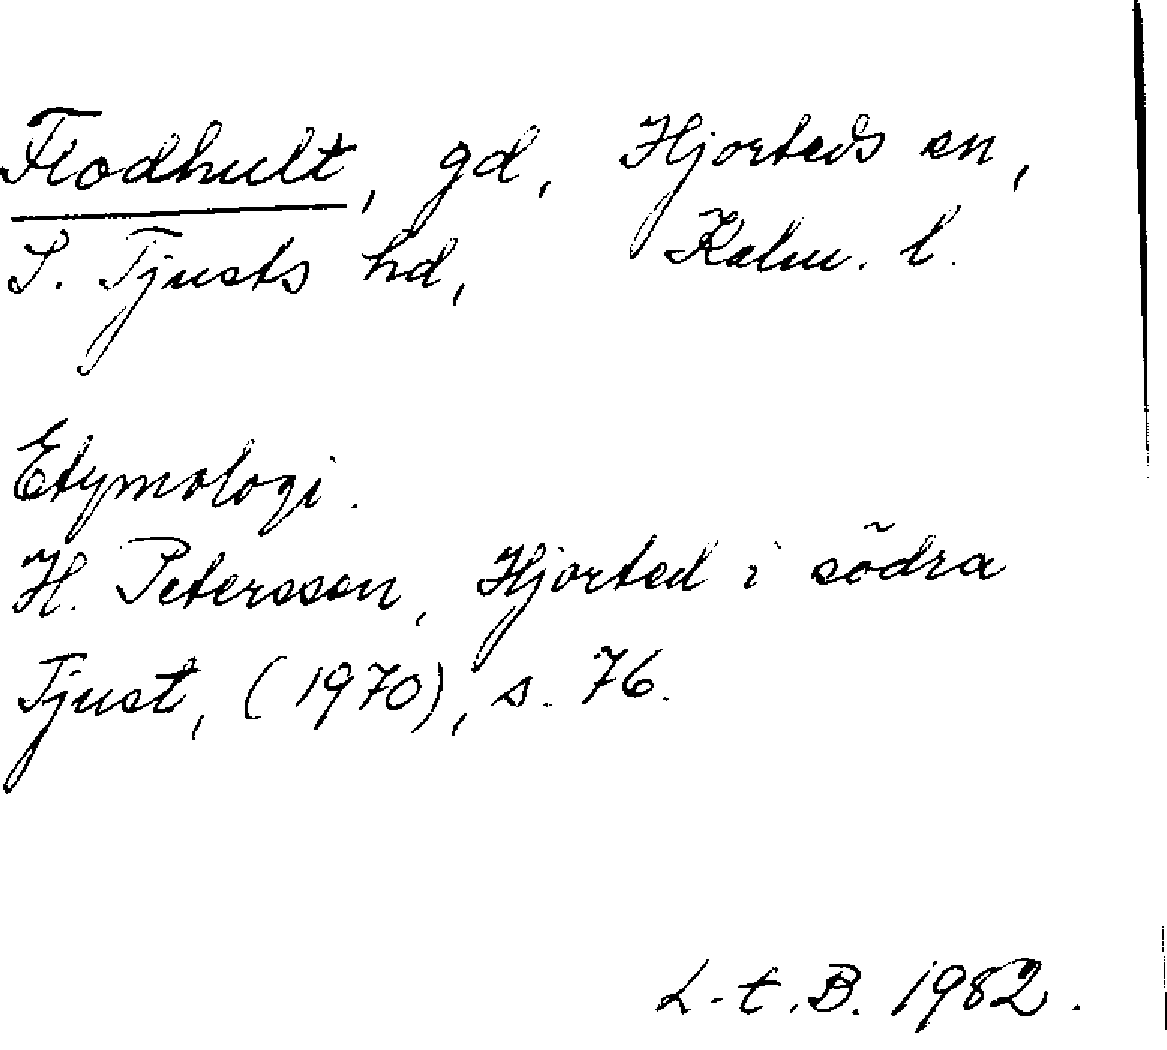 Flodhult, gd, Hjorteds sn,
S. Tjusts hd, Kalm. l.
Etymologi.
H. Petersson, Hjorted i södra
Tjust, (1970), s. 76.
L.t.B. 1982.